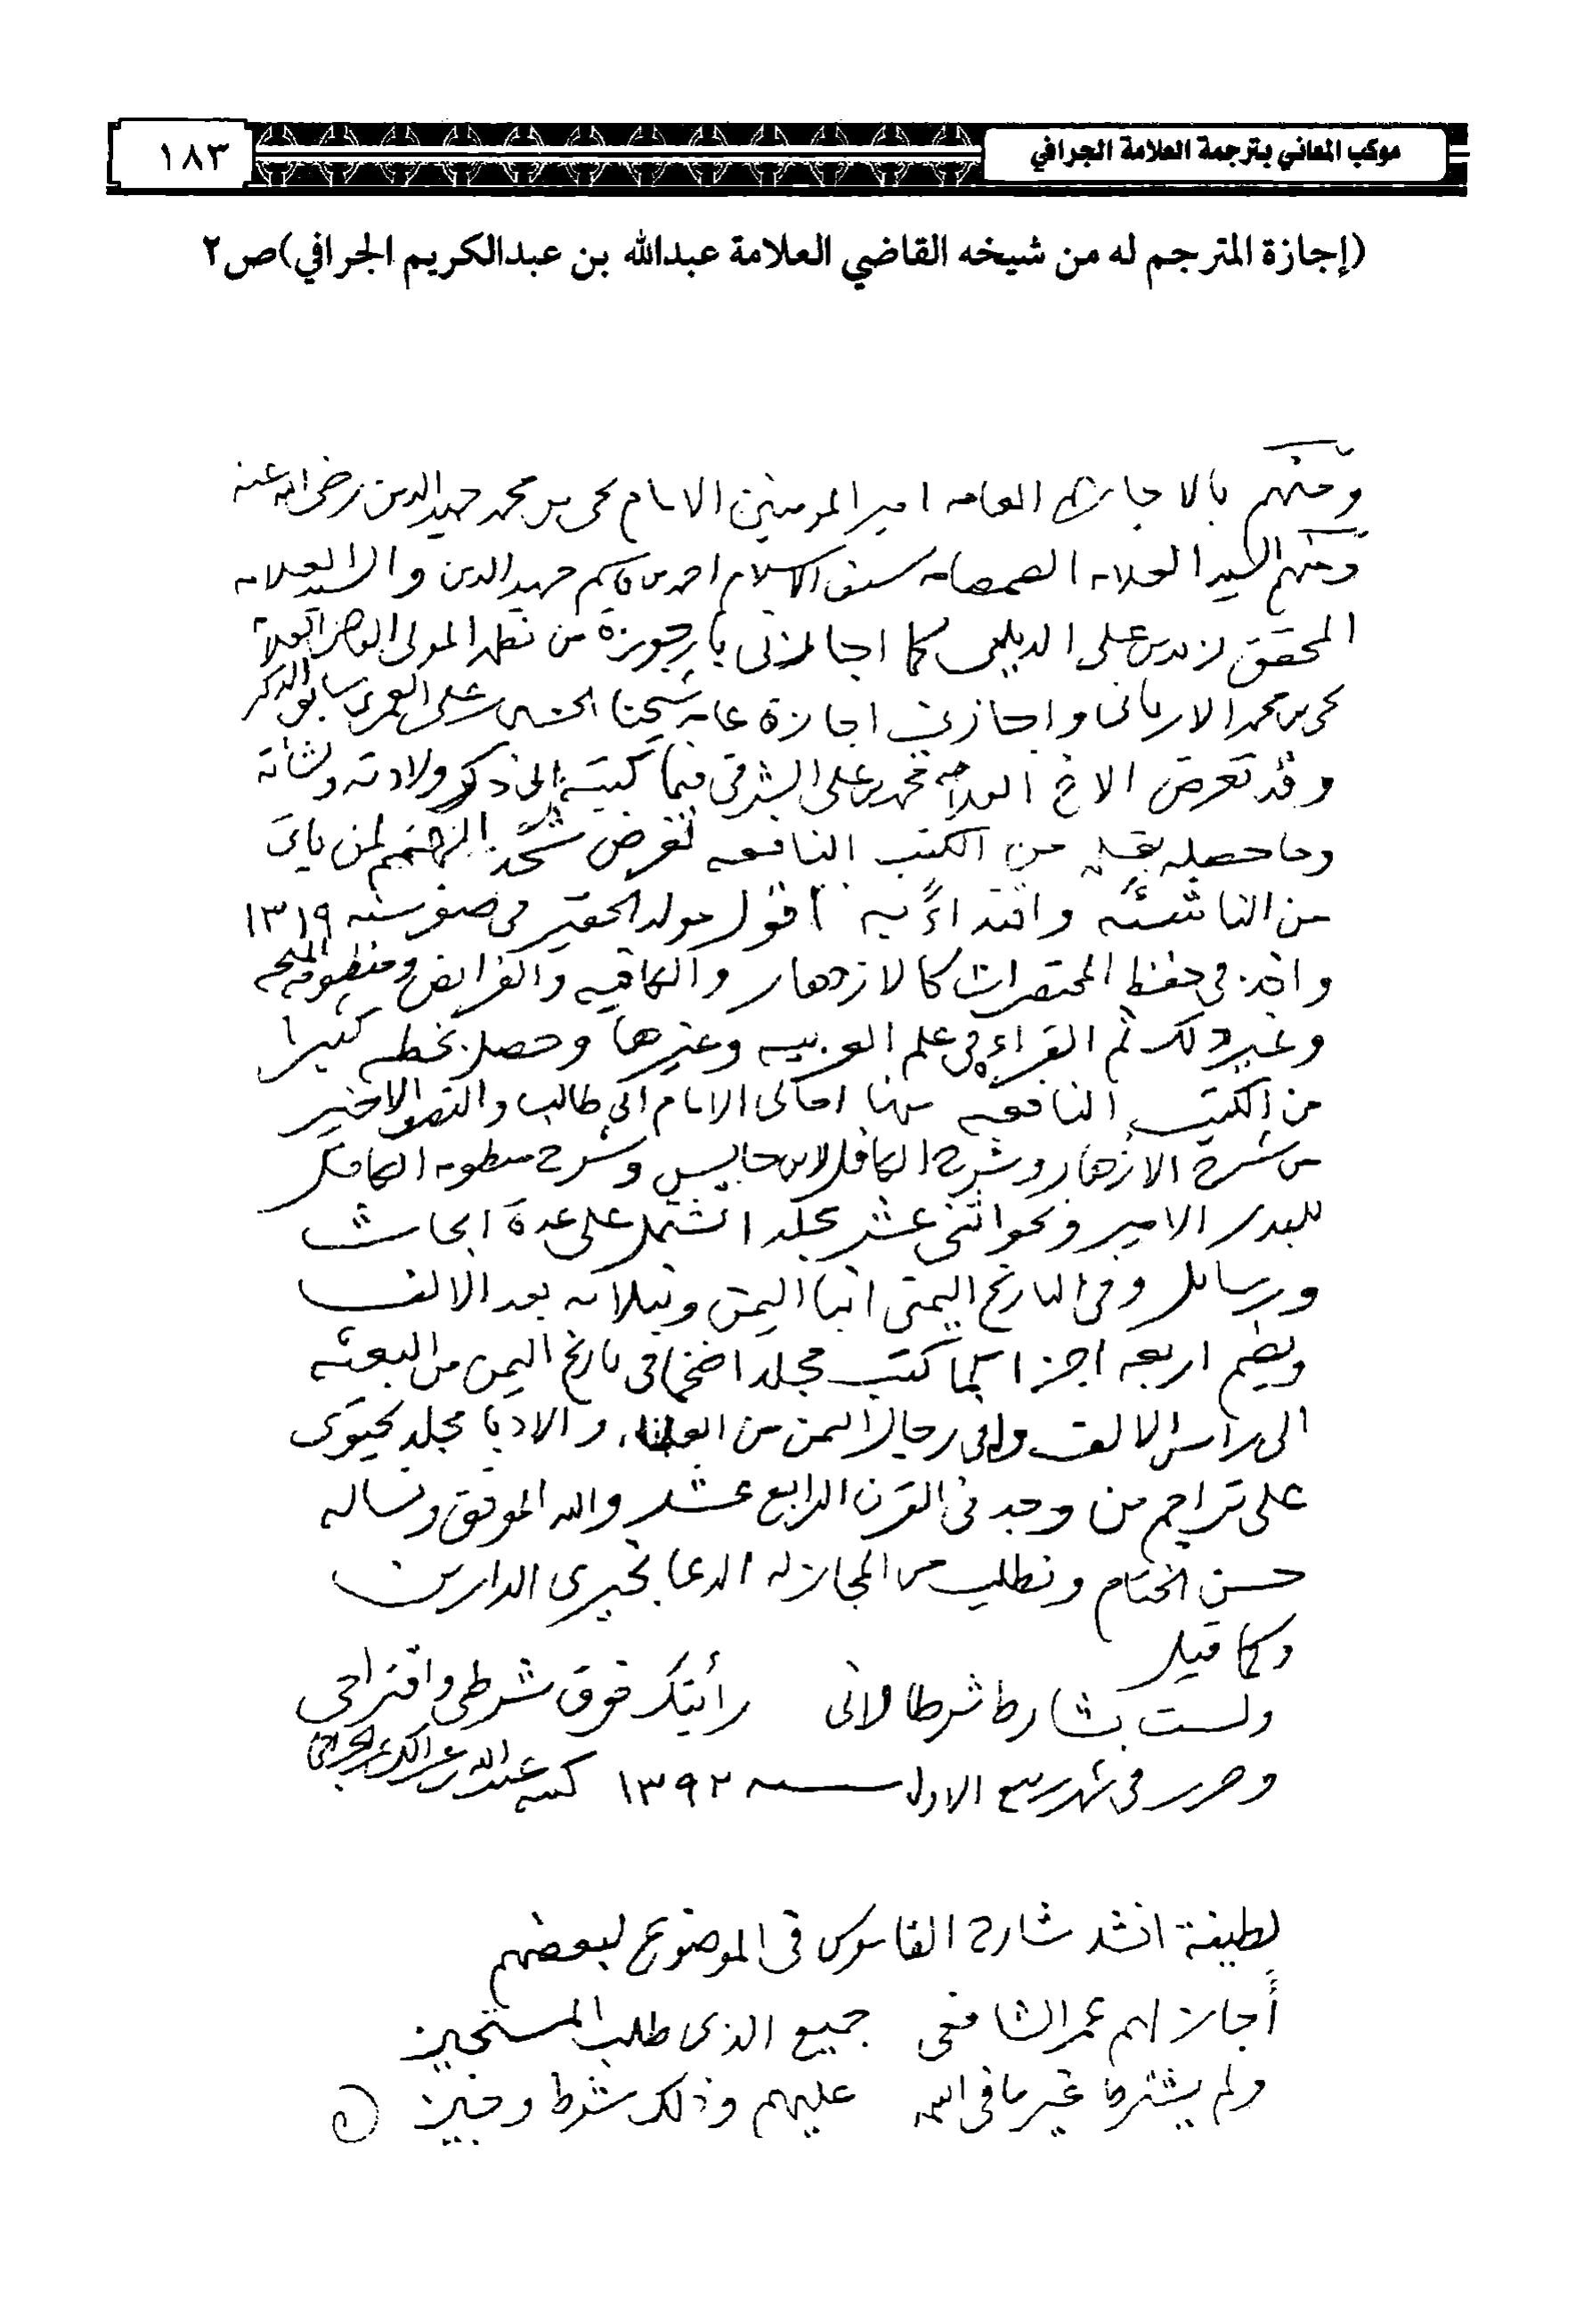 موكب المعاني بترجمة العلامة الجرافي
١٨٣
(إجازة المترجم له من شيخه القاضي العلامة عبدالله بن عبدالكريم الجرافي)ص٢
ومنهم بالاجازة العامه امير المومنين الامام يحيى بن محمد حميد الدين رضي الله عنه
ومنهم السيد العلامه الصمصامه سيف الاسلام احمد بن قاسم حميد الدين والسيد العلامه
المحقق زيد بن علي الديلمي كما اجازني بارجوزة من نظمه المولى العلامة
يحيى بن محمد الارياني واجازني اجازة عامة شيخنا الحسين بن علي العمري سابق الذكر
وقد تعرض الاخ العلامه محمد بن علي الشرفي فيما كتبته الى ذكر ولادته ونشاته
وما حصله بقلمه من الكتب النافعه لغرض شحذ الهمم لمن ياتي
من الناشئه واقتداءً به اقول مولد الحقير في صفر سنه ١٣١٩
واخذ في حفظ المختصرات كالازهار والكافيه والفرائض ومنظومة
وغير ذلك ثم القراءة في علم العربيه وغيرها وحصل بخطه كثيرا
من الكتب النافعه منها امالي الامام ابي طالب والنصف الاخير
من شرح الازهار وشرح الكافل لابن حابس وشرح منظومه الكافل
للبدر الامير ونحو اثني عشر مجلدا تشتمل على عدة ابحاث
ورسائل وفي التاريخ اليمني انباء اليمن ونبلائه بعد الالف
ويضم اربعه اجزا كما كتب مجلدا ضخما في تاريخ اليمن من البعثه
الى راس الالف وفي رجال اليمن من العلماء والادبا مجلد يحتوى
على تراجم من وجد في القرن الرابع عشر والله الموفق ونساله
حسن الختام ونطلب من المجاز له الدعا بخيرى الدارين
وكما قيل
ولست بشارط شرطا لاني رأيتك فوق شرطي واقتراحي
وحرر في شهر ربيع الاول سنه ١٣٩٢ كتبه عبدالله بن عبدالكريم الجرافي
لطيفة انشد شارح القاموس في الموضوع لبعضهم
أجاز لهم عمر الشافعي جميع الذي طلب المستجيز
ولم يشترط غير ما في اسمه عليهم وذلك شرط وجيز